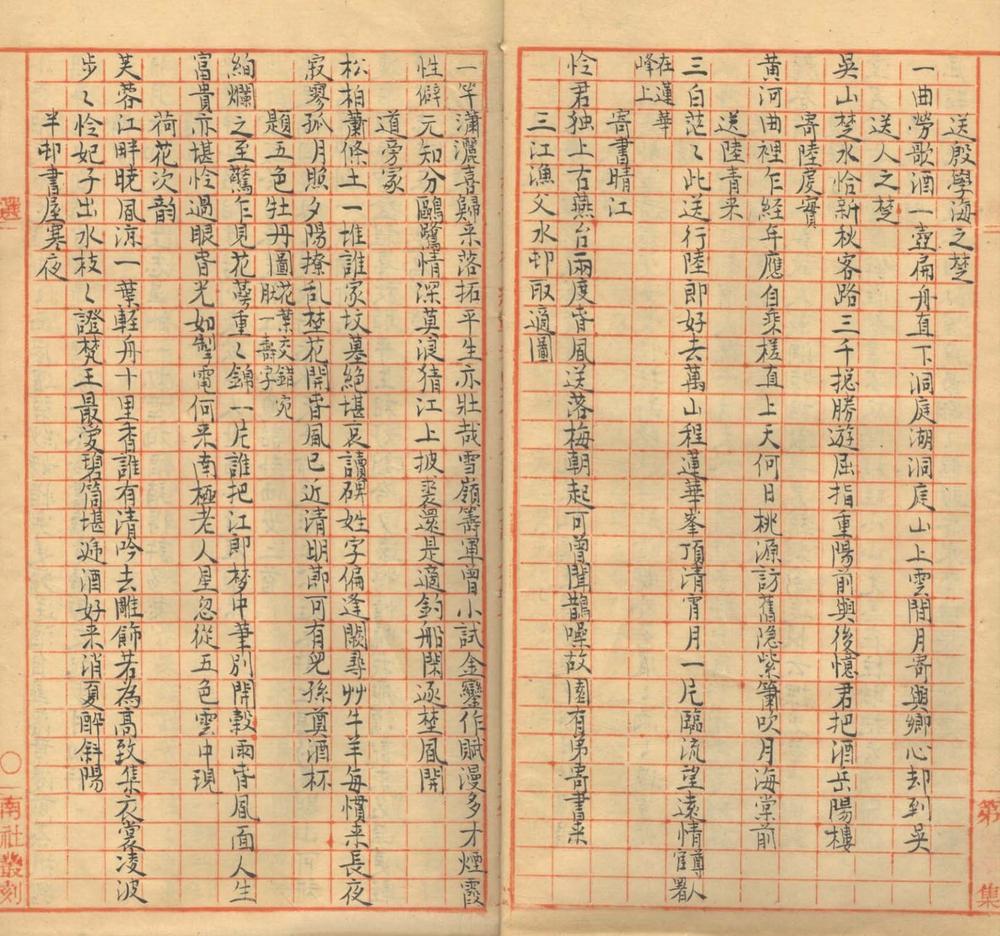 送殷學海之楚
一曲勞歌酒一壺扁舟直下洞庭湖洞庭山上雲間月寄與鄉心却到吳
送人之楚
吳山楚水恰新秋客路三千揔勝遊屈指重陽前與後憶君把酒岳陽樓
寄陸慶實
黃河曲裡乍経年應自乘槎直上天何日桃源訪舊隐紫簫吹月海棠前
送陸青來
三白茫〻此送行陸郎好去萬山程蓮華峯頂清宵月一片臨流望遠情
官署
在蓮華
峰上
寄書晴江
怜君独上古燕台兩度昔風送落梅朝起可曾聞鵲噪故園有弟寄書来
三江漁父水邨取適圖
一竿瀟灑喜歸来落拓平生亦壯哉雪嶺籌軍曾小試金鑾作賦漫多才煙霞
性僻元知分鷗鷺情深莫浪猜江上披裘還是適釣船閑逐埜風開
道旁冢
松柏蕭條土一堆誰家坟墓絶堪哀讀碑姓字偏逢闕尋艸牛羊每慣来長夜
寂寥孤月照夕陽撩乱埜花開昔風已近清明節可有兒孫奠酒杯
題五色牡丹圖
花葉交錯宛
肰一壽字
絢爛之至驚乍見花蕚重〻錦一片誰把江郎梦中筆別開穀雨昔風面人生
富貴亦堪怜過眼昔光如掣電何来南極老人星忽從五色雲中現
荷花次韵
芙蓉江畔曉風涼一葉輕舟十里香誰有清吟去雕飾若為高致集衣裳凌波
步〻怜妃子出水枝〻證梵王最愛碧筒堪逓酒好来消夏醉斜陽
半邨書屋寒夜
第
集
選
南社叢刻